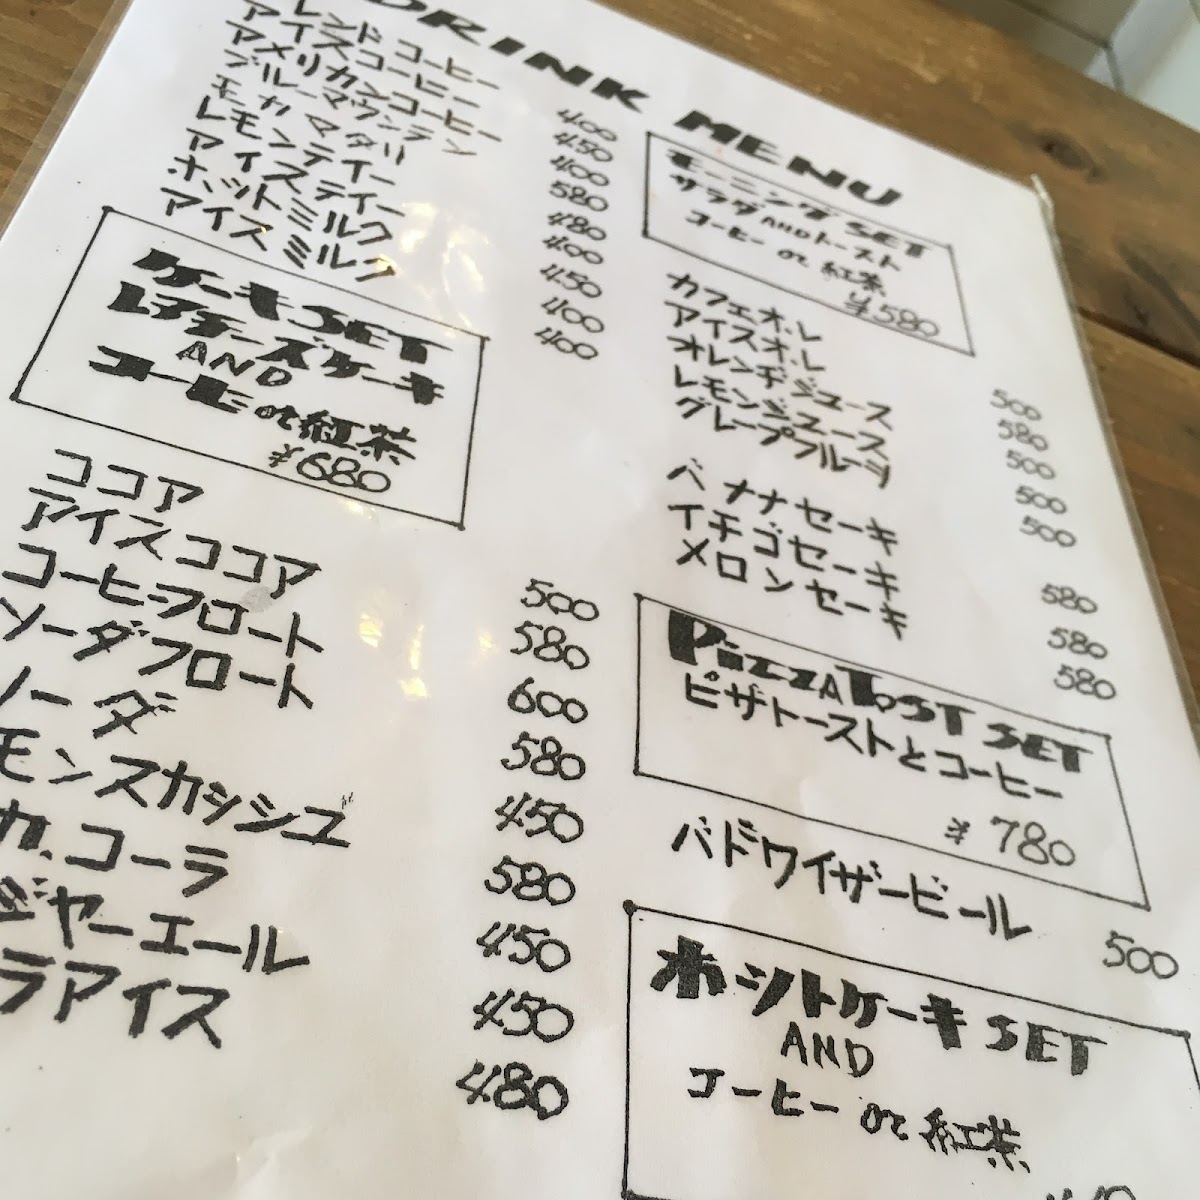 DRINK MENU
レンド コーヒー
アイスコーヒー 400
アメリカンコーヒー 450
ブルーマウンテン 400
モカ マタリ 580
レモンティー 480
アイスティー 400
ホットミルク 450
アイスミルク 400
400
ケーキSET
レアチーズケーキ
AND
コーヒー or 紅茶
¥680
ココア 500
アイスココア 580
コーヒーフロート 600
ソーダフロート 580
ソーダ 450
モンスカッシュ 580
カ.コーラ 450
ジャーエール 450
ラアイス 480
モーニングSET
サラダANDトースト
コーヒー or 紅茶
¥580
カフェオ.レ 500
アイスオ.レ 580
オレンヂジュース 500
レモンジュース 500
グレープフルーツ 500
バナナセーキ 580
イチゴセーキ 580
メロンセーキ 580
PizzA ToST SET
ピザトーストとコーヒー
¥780
バドワイザービール 500
ホットケーキSET
AND
コーヒー or 紅茶